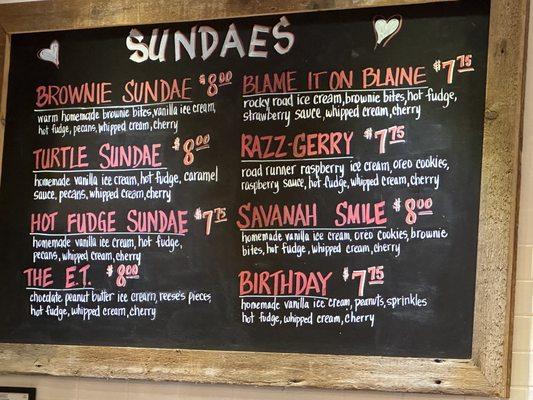 SUNDAES
BROWNIE SUNDAE $8.00
warm homemade brownie bites, vanilla ice cream,
hot fudge, pecans, whipped cream, cherry
TURTLE SUNDAE $8.00
homemade vanilla ice cream, hot fudge, caramel
sauce, pecans, whipped cream, cherry
HOT FUDGE SUNDAE $7.75
homemade vanilla ice cream, hot fudge,
pecans, whipped cream, cherry
THE E.T. $8.00
chocolate peanut butter ice cream, reese's pieces,
hot fudge, whipped cream, cherry
BLAME IT ON BLAINE $7.75
rocky road ice cream, brownie bites, hot fudge,
strawberry sauce, whipped cream, cherry
RAZZ-GERRY $7.75
road runner raspberry ice cream, oreo cookies,
raspberry sauce, hot fudge, whipped cream, cherry
SAVANAH SMILE $8.00
homemade vanilla ice cream, oreo cookies, brownie
bites, hot fudge, whipped cream, cherry
BIRTHDAY $7.75
homemade vanilla ice cream, peanuts, sprinkles
hot fudge, whipped cream, cherry